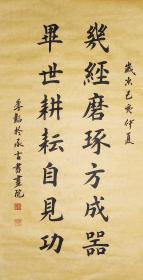 歲次己亥仲夏
幾經磨琢方成器
畢世耕耘自見功
於承古書畫院